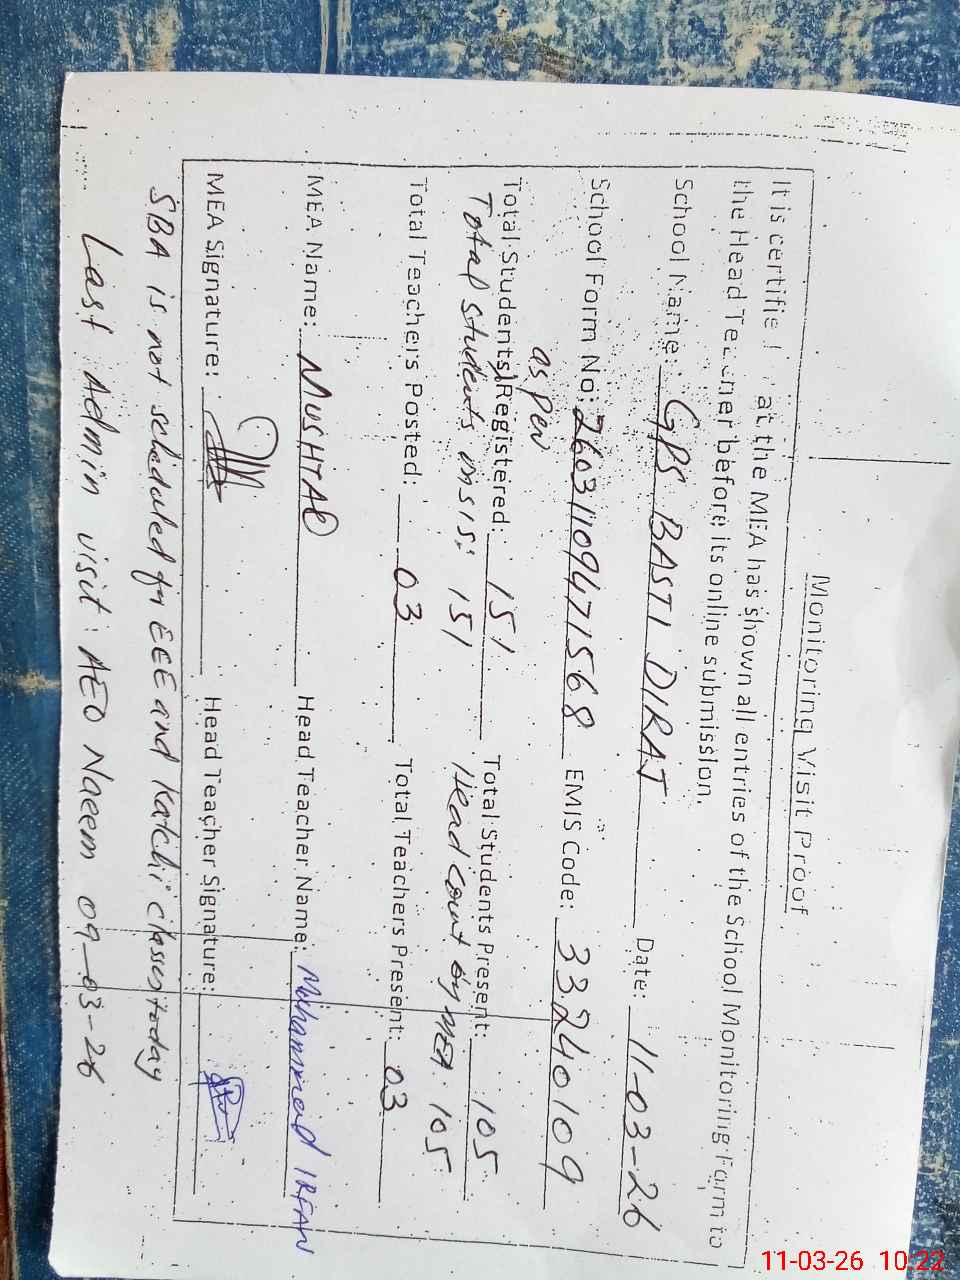 Monitoring Visit Proof
It is certifie at the MEA has shown all entries of the School Monitoring Form to
the Head Teacher before its online submission.
School Name: GPS BASTI DIRAT Date: 11-03-26
School Form No: 26031109471568 EMIS Code: 33240109
as per
Total Students Registered: 151 Total Students Present: 105
Total students in SIS: 151 Head count by MEA: 105
Total Teachers Posted: 03 Total Teachers Present: 03
MEA Name: MUSHTAQ Head Teacher Name: Muhammad IRFAN
MEA Signature: Head Teacher Signature:
SBA is not scheduled for ECE and Katchi classes today
Last Admin visit: AEO Naeem 09-03-26
11-03-26 10:22